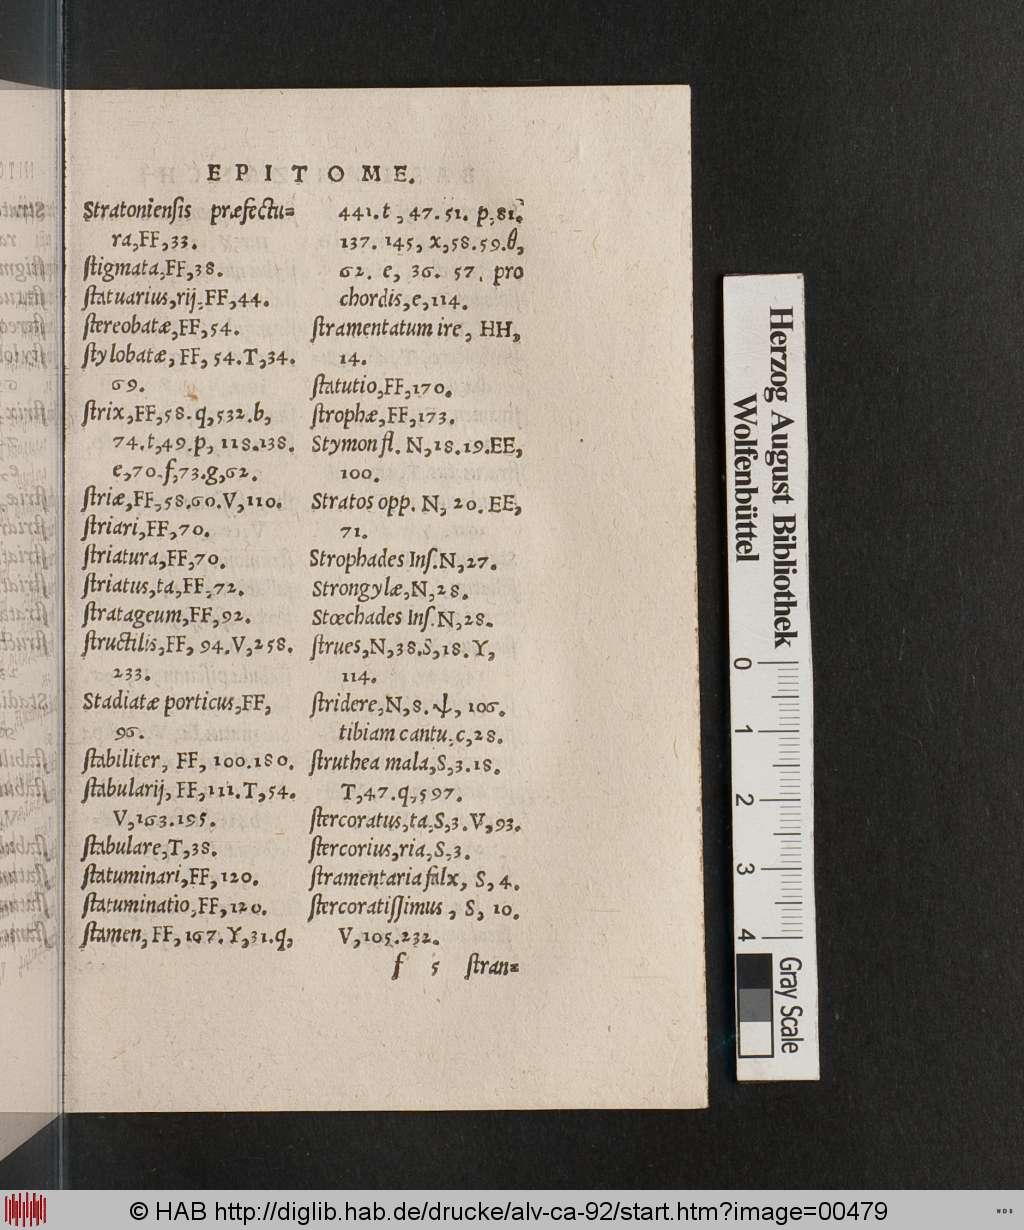 EPITOME.
Stratoniensis præfectu=
ra,FF,33.
stigmata,FF,38.
statuarius,rij,FF,44.
stereobatæ,FF,54.
stylobatæ, FF, 54.T,34.
69.
strix,FF,58.q,532.b,
74.t,49.p, 118.138.
e,70.f,73.g,62.
striæ,FF,58.60.V,110.
striari,FF,70.
striatura,FF,70.
striatus,ta,FF,72.
stratageum,FF,92.
structilis,FF, 94.V,258.
233.
Stadiatæ porticus,FF,
96.
stabiliter, FF, 100.180.
stabularij, FF,111.T,54.
V,163.195.
stabulare,T,38.
statuminari,FF,120.
statuminatio,FF,120.
stamen, FF, 167. Y,31.q,
441.t, 47.51. p,81.
137. 145, x,58.59.θ,
62. e, 36. 57. pro
chordis,e,114.
stramentatum ire, HH,
14.
statutio,FF,170.
strophæ,FF,173.
Stymon fl. N,18.19.EE,
100.
Stratos opp. N, 20. EE,
71.
Strophades Ins.N,27.
Strongylæ,N,28.
Stœchades Ins.N,28.
strues,N,38.S,18. Y,
114.
stridere,N,8.ψ, 106.
tibiam cantu,c,28.
struthea mala,S,3.18.
T,47.q,597.
stercoratus,ta,S,3.V,93.
stercorius,ria,S,3.
stramentaria falx, S, 4.
stercoratissimus, S, 10.
V,105.232.
f 5 stran=
Herzog August Bibliothek
Wolfenbüttel
0 1 2 3 4
Gray Scale
© HAB http://diglib.hab.de/drucke/alv-ca-92/start.htm?image=00479